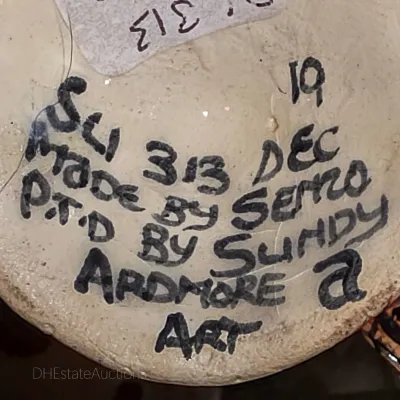 313
19
SU 313 DEC
MADE BY SENZO
P.T.D BY SUNDY
ARDMORE a
ART
DHEstateAuctio